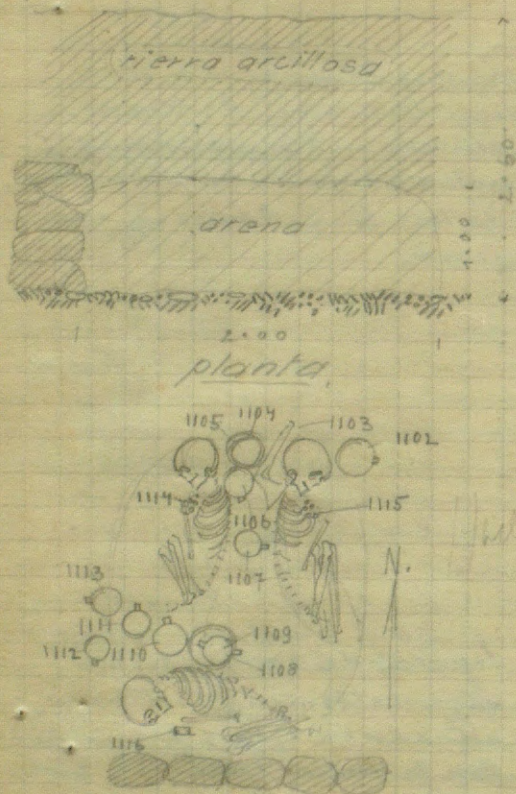 tierra arcillosa
2.60
arena
1.00
2.00
planta
1105 1104 1103
1102
1114 1115
1106
1107
N.
1113
1111
1112 1110 1109
1108
1116